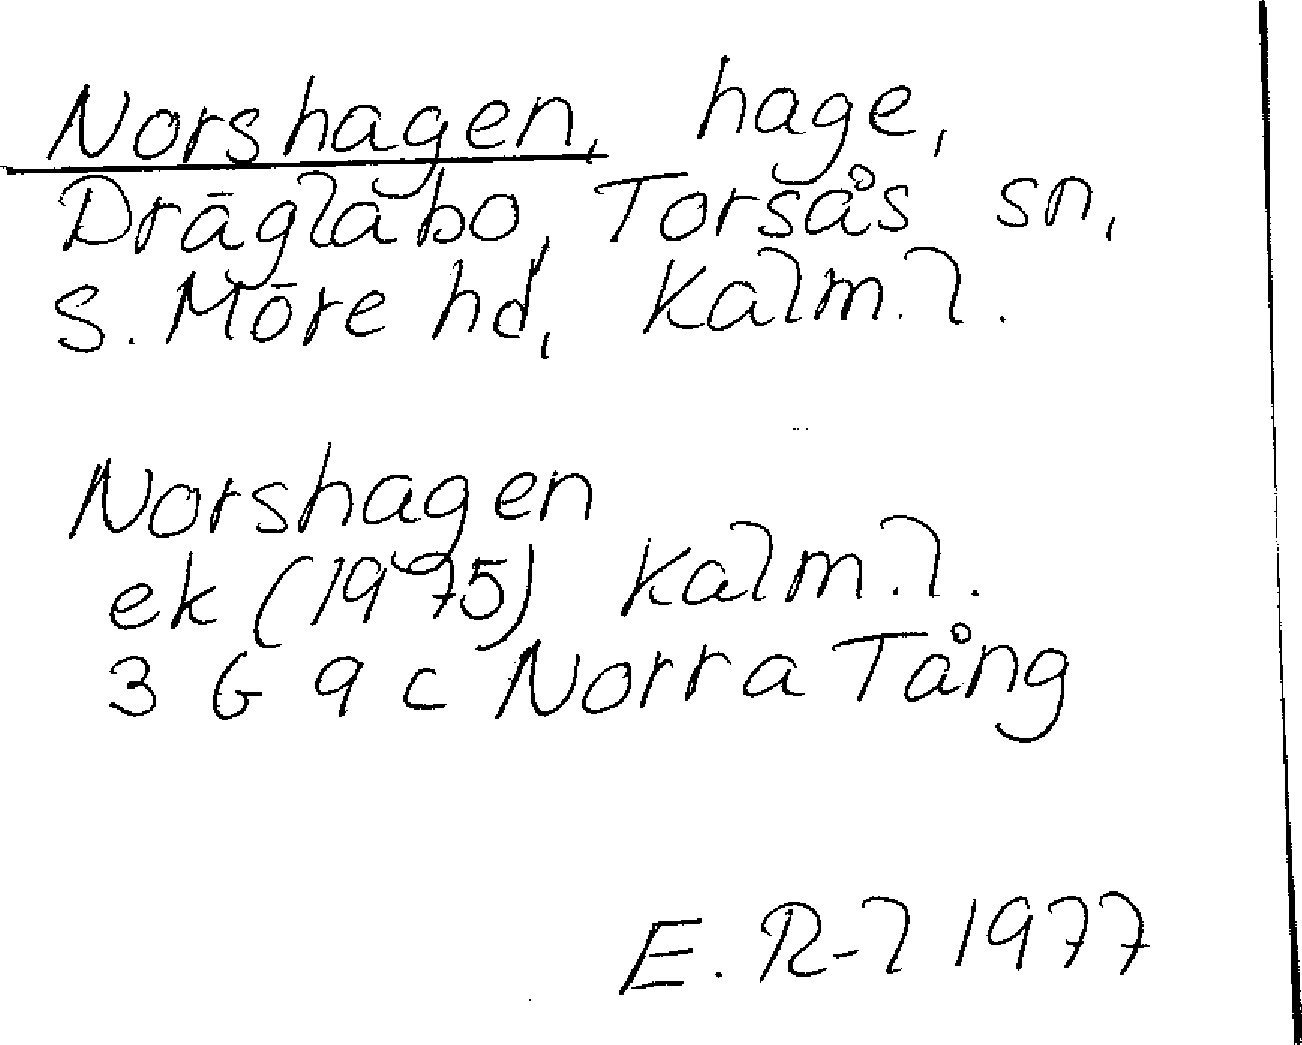 Norshagen, hage,
Dräglabo, Torsås sn,
S. Möre hd, Kalm.l.
Norshagen
ek (1975) Kalm.l.
3 G 9 c Norra Tång
E. R-l 1977